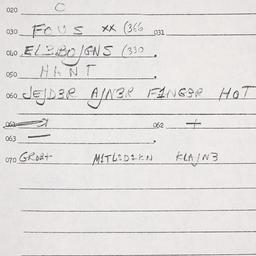 020 C
030 FOUS xx (366 031
040 ELEBOJGNS (330
050 HANT
060 JEJDER AJNER FINGER HOT
061 062 +
063 —
070 GROBT MITLIDIKN KLAJNE